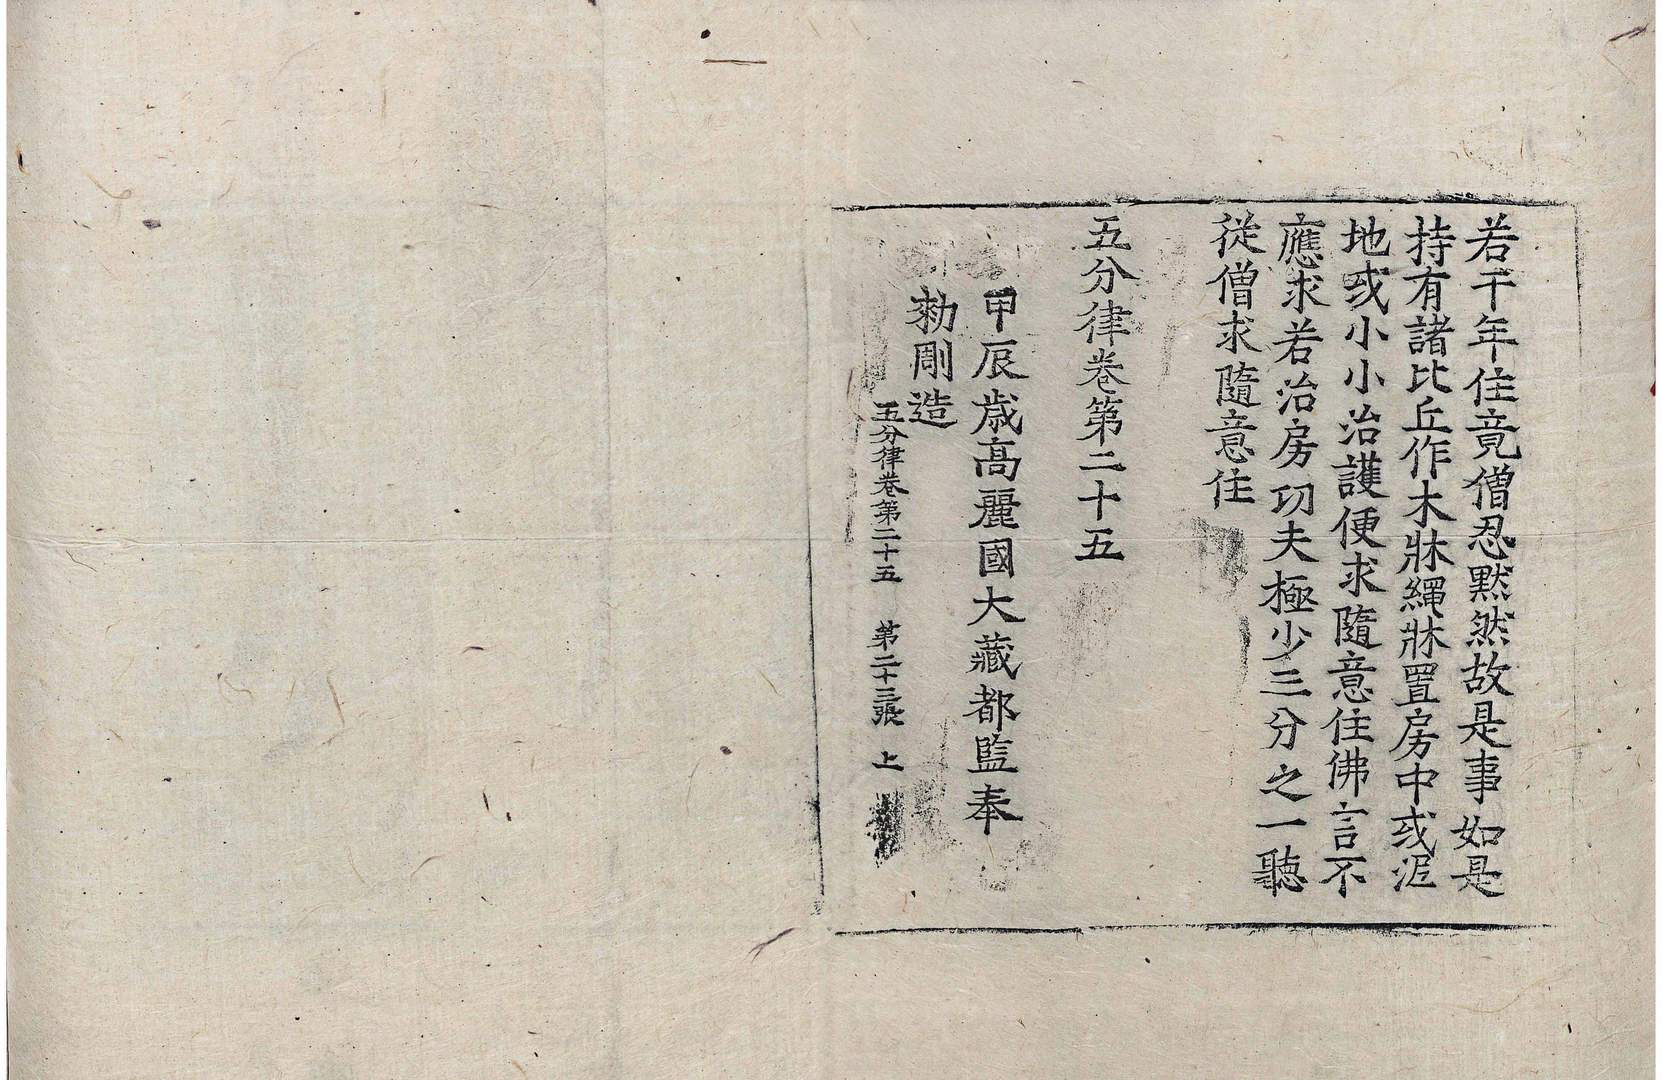 若干年住竟僧忍默然故是事如是
持有諸比丘作木牀繩牀置房中或泥
地或小小治護便求隨意住佛言不
應求若治房功夫極少三分之一聽
從僧求隨意住
五分律卷第二十五
甲辰歲高麗國大藏都監奉
勑彫造
五分律卷第二十五 第二十三張 上